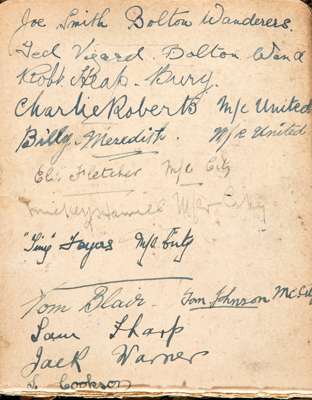 Joe Smith Bolton Wanderers.
Ted Vizard. Bolton Wand
Robb Heap. Bury.
Charlie Roberts M/c United
Billy Meredith. M/c United
Eli Fletcher M/c City
Mickey Hamill M/cr City
"Tiny" Fayers M/c City
Tom Blair. Tom Johnson M C City
Sam Sharp
Jack Warner
S. Cookson